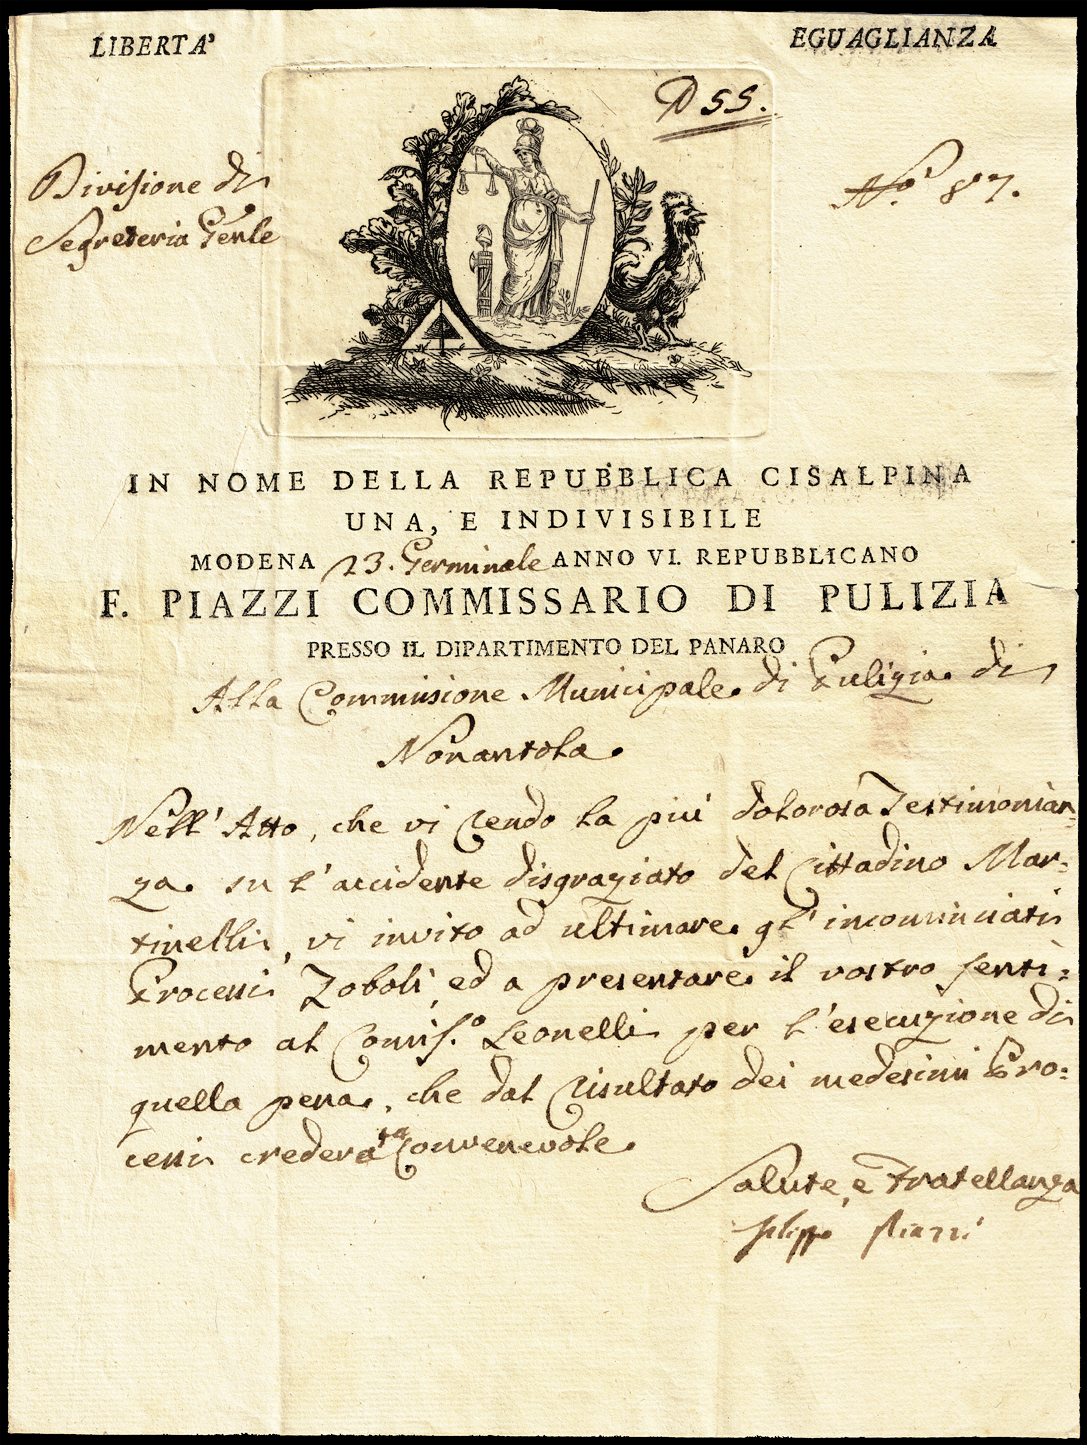 LIBERTA' EGUAGLIANZA
D SS.
Divisione di
Segreteria Genle
No. 87.
IN NOME DELLA REPUBBLICA CISALPINA
UNA, E INDIVISIBILE
MODENA 23. Germinale ANNO VI. REPUBBLICANO
F. PIAZZI COMMISSARIO DI PULIZIA
PRESSO IL DIPARTIMENTO DEL PANARO
Alla Commissione Municipale di Pulizia di
Nonantola.
Nell' Atto, che vi rendo la più dolorosa Testimonian=
za su l'accidente disgraziato del Cittadino Mar=
tinelli, vi invito ad ultimare gl' incominciati
Processi Zoboli, ed a presentare il vostro senti=
mento al Comis.o Leonelli per l'esecuzione di
quella pena, che dal risultato dei medesimi Pro=
cessi crederà convenevole.
Salute, e Fratellanza
Filippo Piazzi